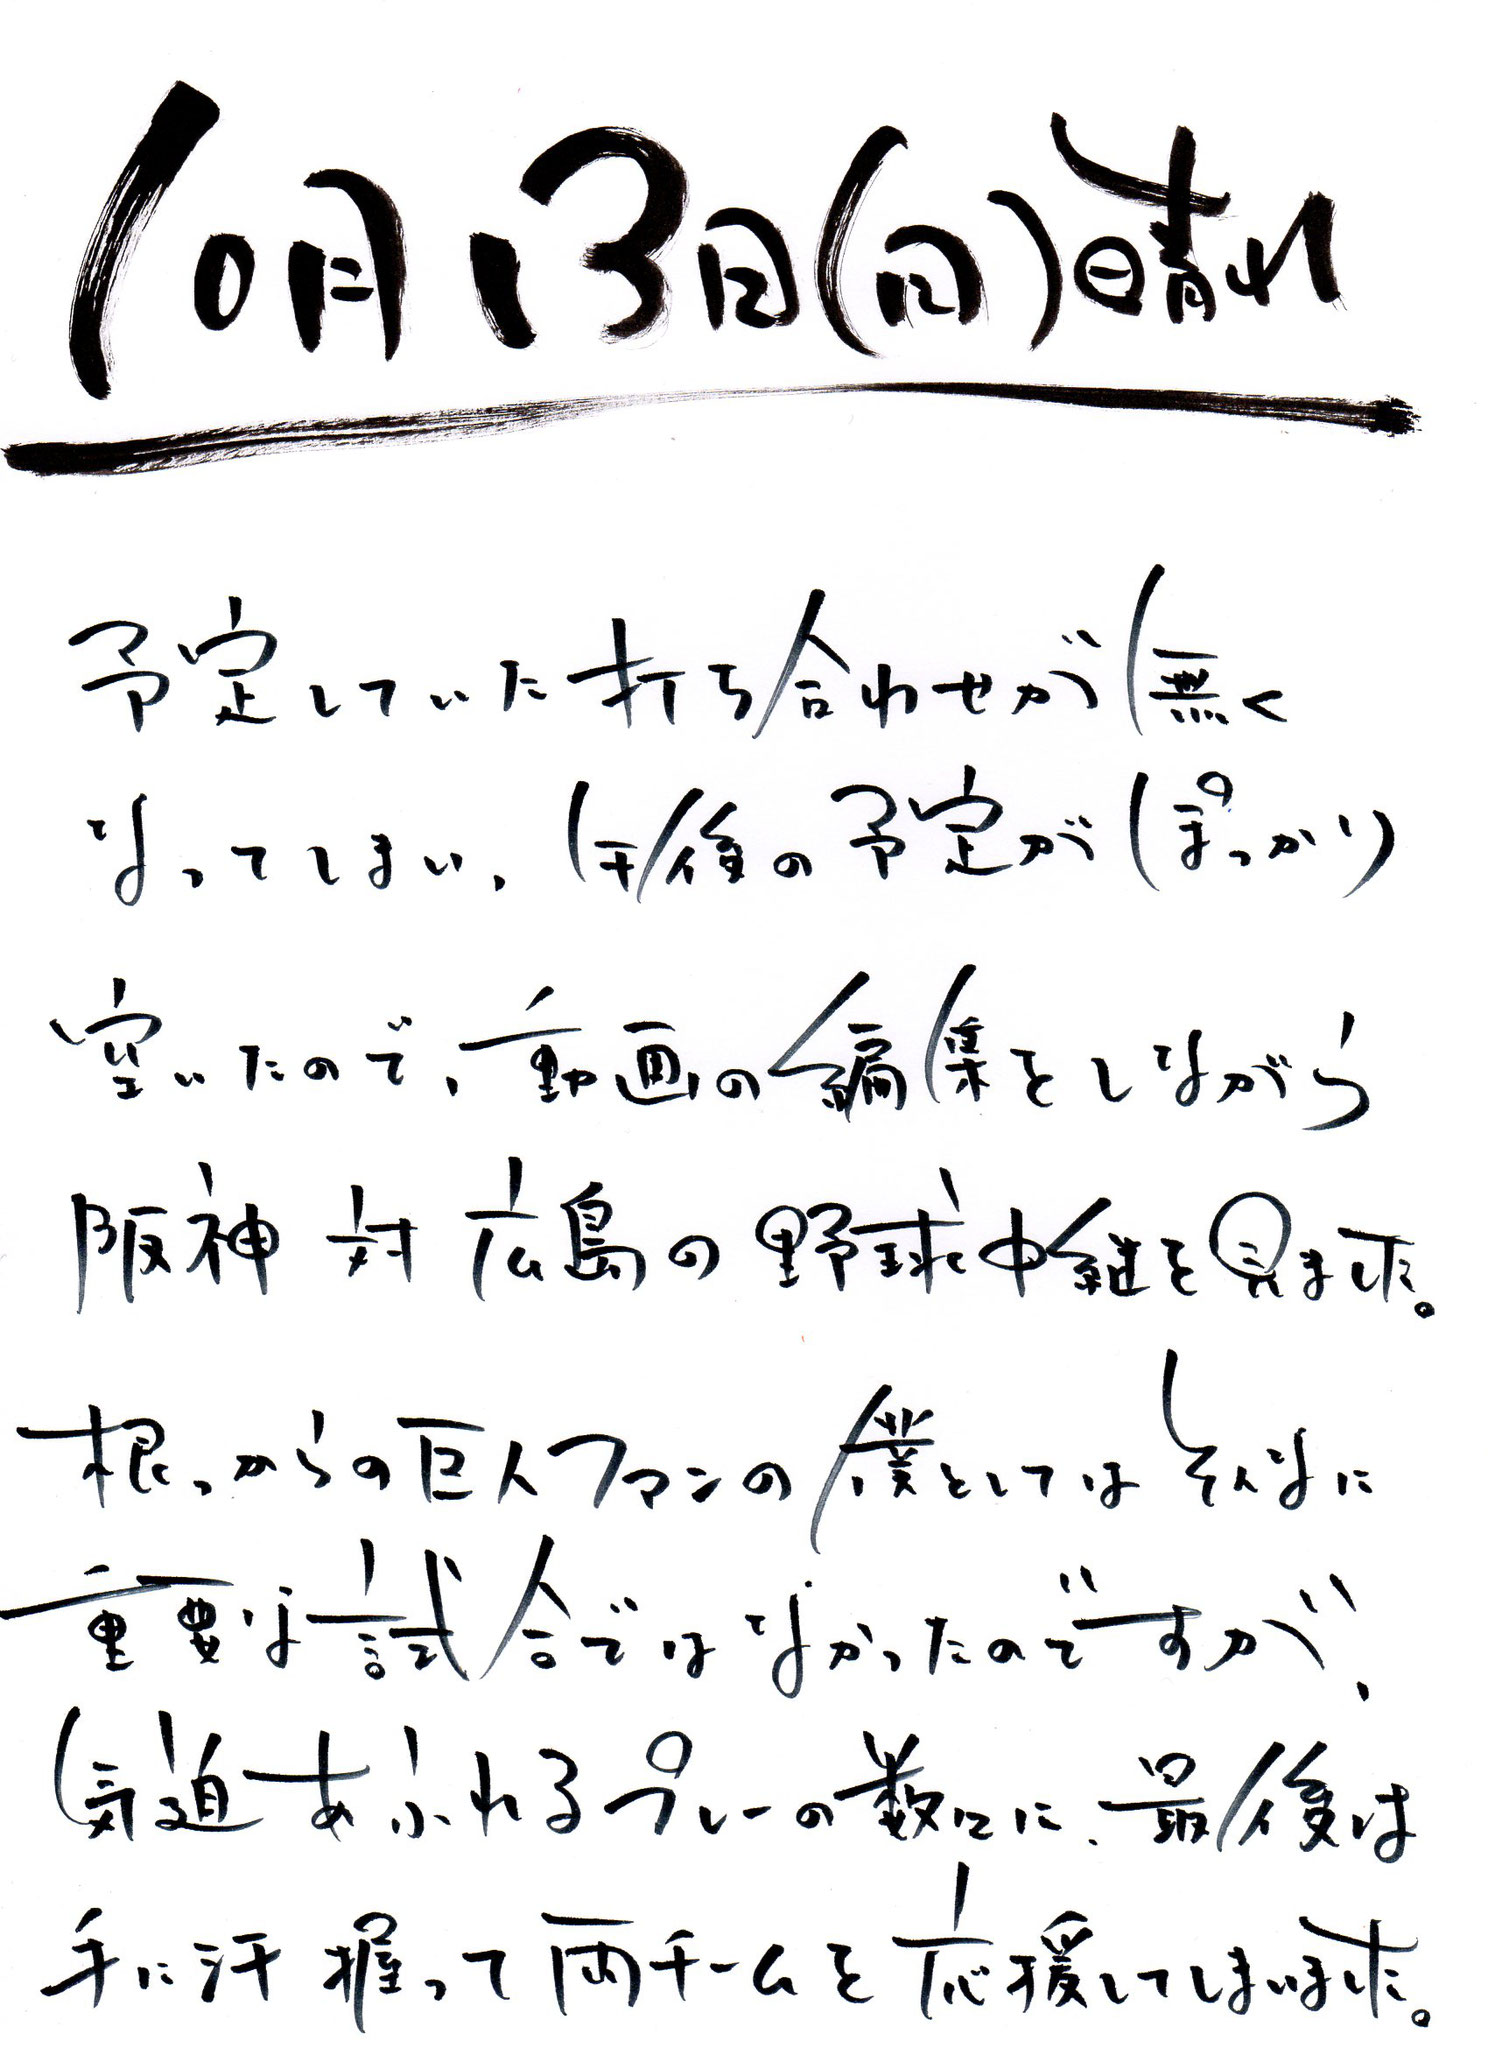 10月13日(日)晴れ
予定していた打ち合わせが無く
なってしまい、午後の予定がぽっかり
空いたので、動画の編集をしながら
阪神 対 広島の野球中継を見ました。
根っからの巨人ファンの僕としてはそんなに
重要な試合ではなかったのですが、
気迫あふれるプレーの数々に、最後は
手に汗握って両チームを応援してしまいました。